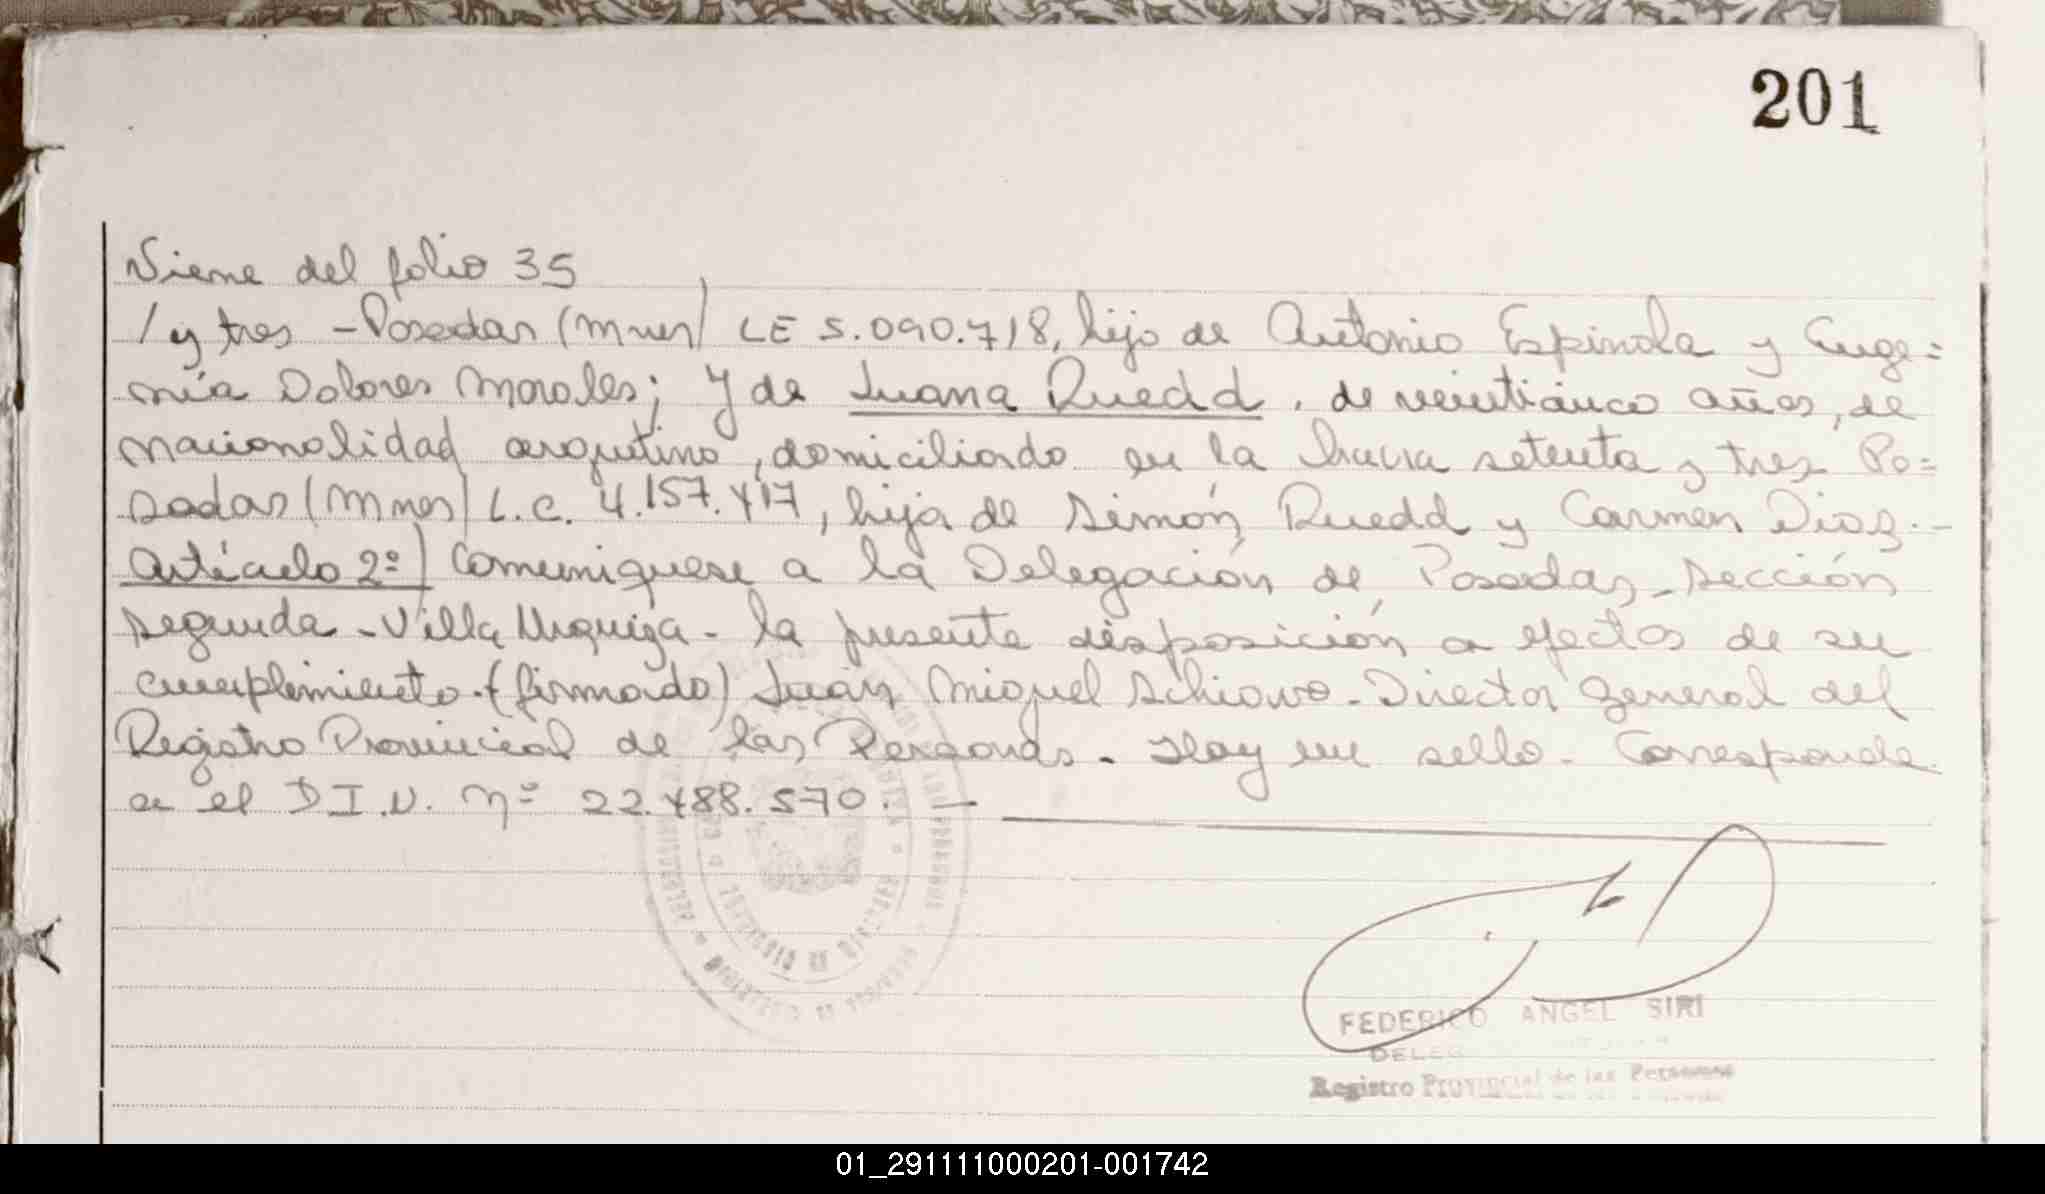 201
Viene del folio 35
/y tres - Posadas (Mnes) LE 5.090.718, hijo de Antonio Espinola y Euge=
nia Dolores Morales; Y de Juana Ruedd, de veinticinco años, de
nacionalidad argentina, domiciliado en la chacra setenta y tres Po=
sadas (Mnes) L.C. 4.157.417, hija de Simón Ruedd y Carmen Diaz.-
Artículo 2º) Comuniquese a la Delegación de Posadas, Sección
segunda - Villa Urquiza - la presente disposición a efectos de su
cumplimiento. (firmado) Juan Miguel Schiavo - Director General del
Registro Provincial de las Personas. Hay un sello. Corresponde
a el D.I.N. Nº 22.488.570. —
FEDERICO ANGEL SIRI
Registro Provincial de las Personas
01_291111000201-001742